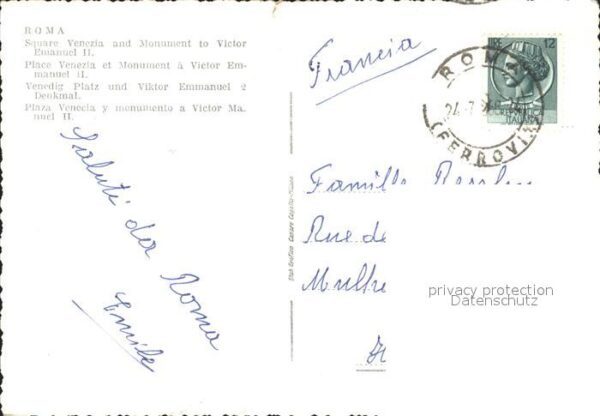 ROMA
Square Venezia and Monument to Victor
Emanuel II.
Place Venezia et Monument à Victor Em-
manuel II.
Venedig Platz und Viktor Emmanuel 2
Denkmal.
Plaza Venecia y monumento a Victor Ma-
nuel II.
Saluti da Roma
Emile
Francia
12
ROMA
24.7
(FERROVIA
ITALIANA
Famille
Rue de
Mulhe
privacy protection
Datenschutz